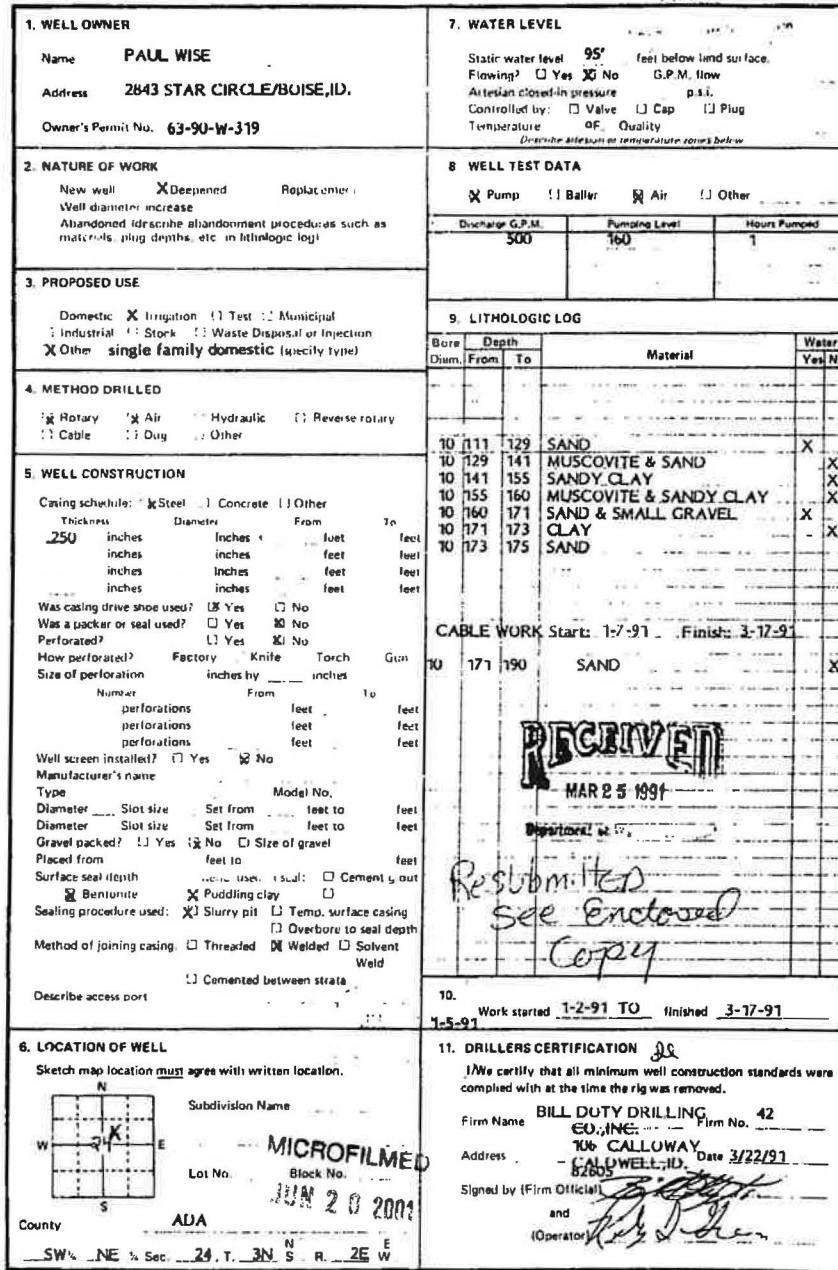 1. WELL OWNER
Name PAUL WISE
Address 2843 STAR CIRCLE/BOISE,ID.
Owner's Permit No. 63-90-W-319
2. NATURE OF WORK
New well X Deepened Replacement
Well diameter increase
Abandoned (describe abandonment procedures such as
materials, plug depths, etc. in lithologic log)
3. PROPOSED USE
Domestic X Irrigation Test Municipal
Industrial Stock Waste Disposal or Injection
X Other single family domestic (specify type)
4. METHOD DRILLED
X Rotary X Air Hydraulic Reverse rotary
Cable Dug Other
5. WELL CONSTRUCTION
Casing schedule: X Steel Concrete Other
Thickness Diameter From To
.250 inches inches feet feet
inches inches feet feet
inches inches feet feet
inches inches feet feet
Was casing drive shoe used? X Yes No
Was a packer or seal used? Yes X No
Perforated? Yes X No
How perforated? Factory Knife Torch Gun
Size of perforation inches by inches
Number From To
perforations feet feet
perforations feet feet
perforations feet feet
Well screen installed? Yes X No
Manufacturer's name
Type Model No.
Diameter Slot size Set from feet to feet
Diameter Slot size Set from feet to feet
Gravel packed? Yes X No Size of gravel
Placed from feet to feet
Surface seal depth Cement grout
X Bentonite X Puddling clay
Sealing procedure used: X Slurry pit Temp. surface casing
Overbore to seal depth
Method of joining casing: Threaded X Welded Solvent
Weld
Cemented between strata
Describe access port
6. LOCATION OF WELL
Sketch map location must agree with written location.
N
W 24 X E
S
Subdivision Name
Lot No. Block No.
MICROFILMED
JUN 20 2001
County ADA
SW ¼ NE ¼ Sec. 24, T. 3N N S R. 2E E W
7. WATER LEVEL
Static water level 95' feet below land surface.
Flowing? Yes X No G.P.M. flow
Artesian closed-in pressure p.s.i.
Controlled by: Valve Cap Plug
Temperature °F. Quality
Describe artesian or temperature zones below
8 WELL TEST DATA
X Pump Bailer X Air Other
Discharge G.P.M. Pumping Level Hours Pumped
500 160 1
9. LITHOLOGIC LOG
Bore Diam. Depth From To Material Water Yes N
10 111 129 SAND X
10 129 141 MUSCOVITE & SAND X
10 141 155 SANDY CLAY X
10 155 160 MUSCOVITE & SANDY CLAY X
10 160 171 SAND & SMALL GRAVEL X
10 171 173 CLAY X
10 173 175 SAND
CABLE WORK Start: 1-7-91 Finish: 3-17-91
10 171 190 SAND X
RECEIVED
MAR 25 1991
Department of
Resubmitted
See Enclosed
Copy
10.
Work started 1-2-91 TO finished 3-17-91
1-5-91
11. DRILLERS CERTIFICATION
I/We certify that all minimum well construction standards were
complied with at the time the rig was removed.
Firm Name BILL DUTY DRILLING CO., INC. Firm No. 42
Address 106 CALLOWAY
CALDWELL, ID. Date 3/22/91
82605
Signed by (Firm Official)
and
(Operator)